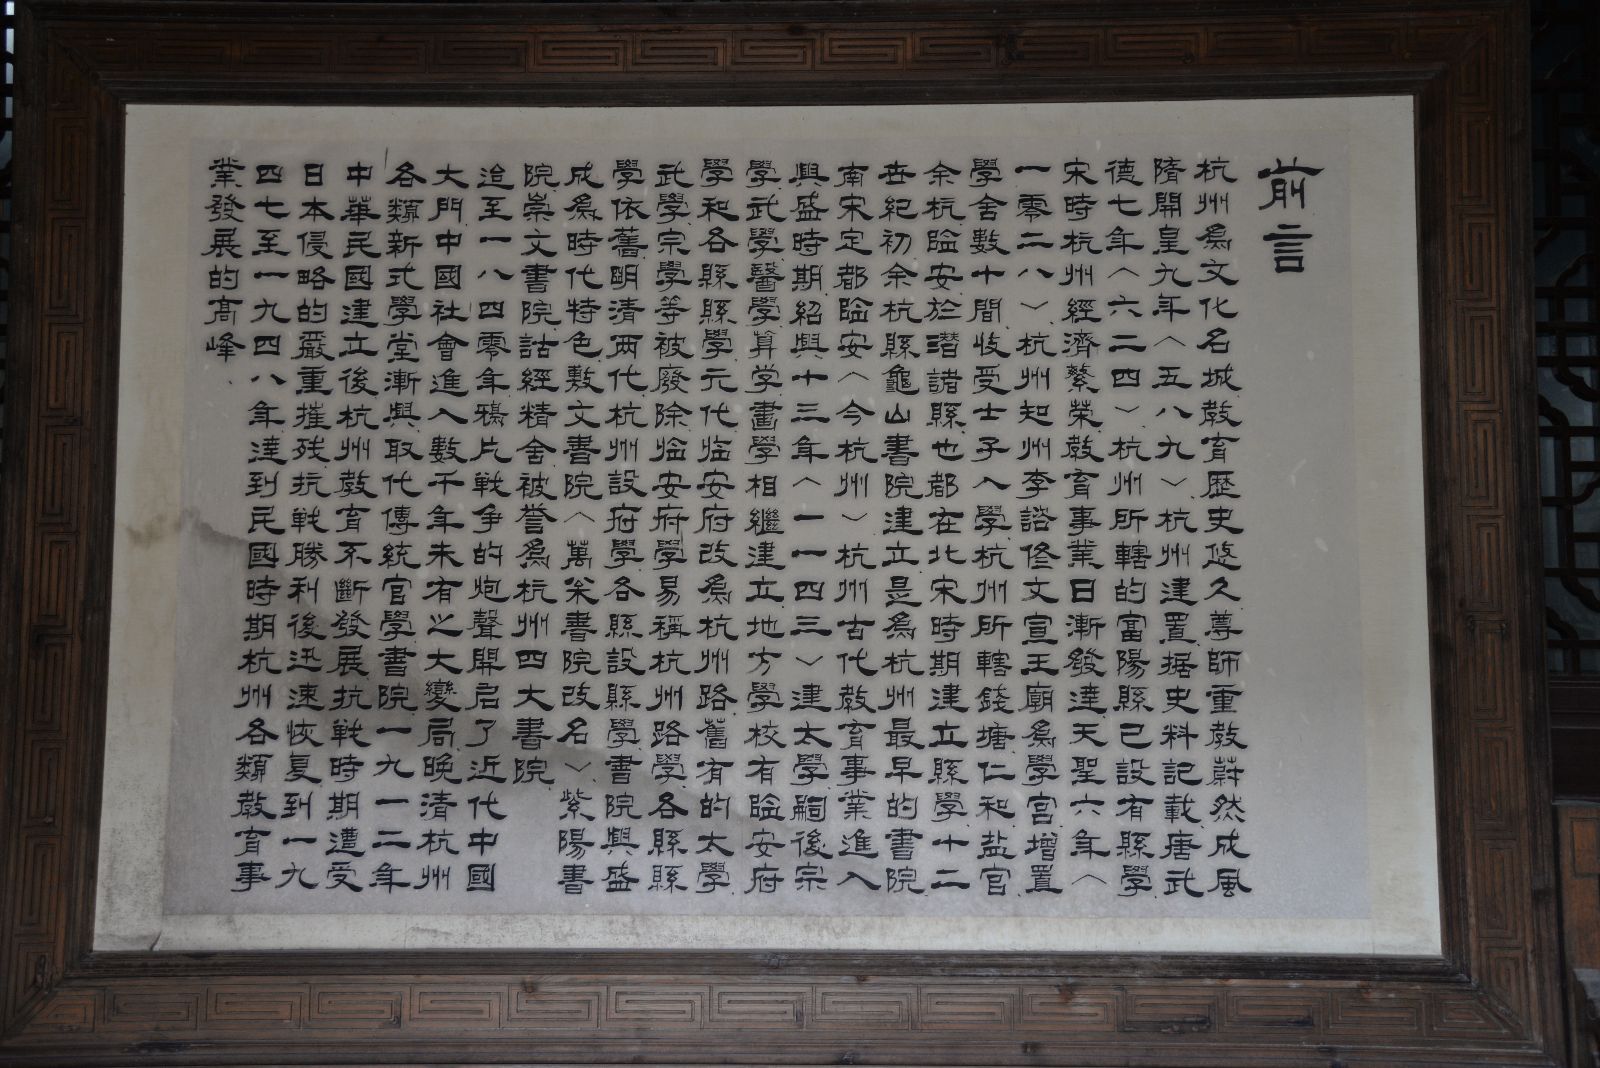 前言
杭州爲文化名城教育歷史悠久尊師重教蔚然成風
隋開皇九年（五八九）杭州建置据史料記載唐武
德七年（六二四）杭州所轄的富陽縣已設有縣學
宋時杭州經濟繁榮教育事業日漸發達天聖六年（
一零二八）杭州知州李諮修文宣王廟爲學宮增置
學舍數十間收受士子入學杭州所轄錢塘仁和盐官
余杭臨安於潛諸縣也都在北宋時期建立縣學十二
世紀初余杭縣龜山書院建立是爲杭州最早的書院
南宋定都臨安（今杭州）杭州古代教育事業進入
興盛時期紹興十三年（一一四三）建太學嗣後宗
學武學醫學算学畫學相繼建立地方學校有臨安府
學和各縣縣學元代临安府改爲杭州路舊有的太學
武學宗學等被廢除临安府學易稱杭州路學各縣縣
學依舊明清两代杭州設府學各縣設縣學書院興盛
成爲時代特色敷文書院（萬松書院改名）紫陽書
院崇文書院詁經精舍被誉爲杭州四大書院
迨至一八四零年鴉片戦争的炮聲開启了近代中國
大門中國社會進入數千年未有之大變局晚清杭州
各類新式學堂漸興取代傳統官學書院一九一二年
中華民國建立後杭州教育不斷發展抗戦時期遭受
日本侵略的嚴重摧残抗戦勝利後迅速恢复到一九
四七至一九四八年達到民國時期杭州各類教育事
業發展的高峰